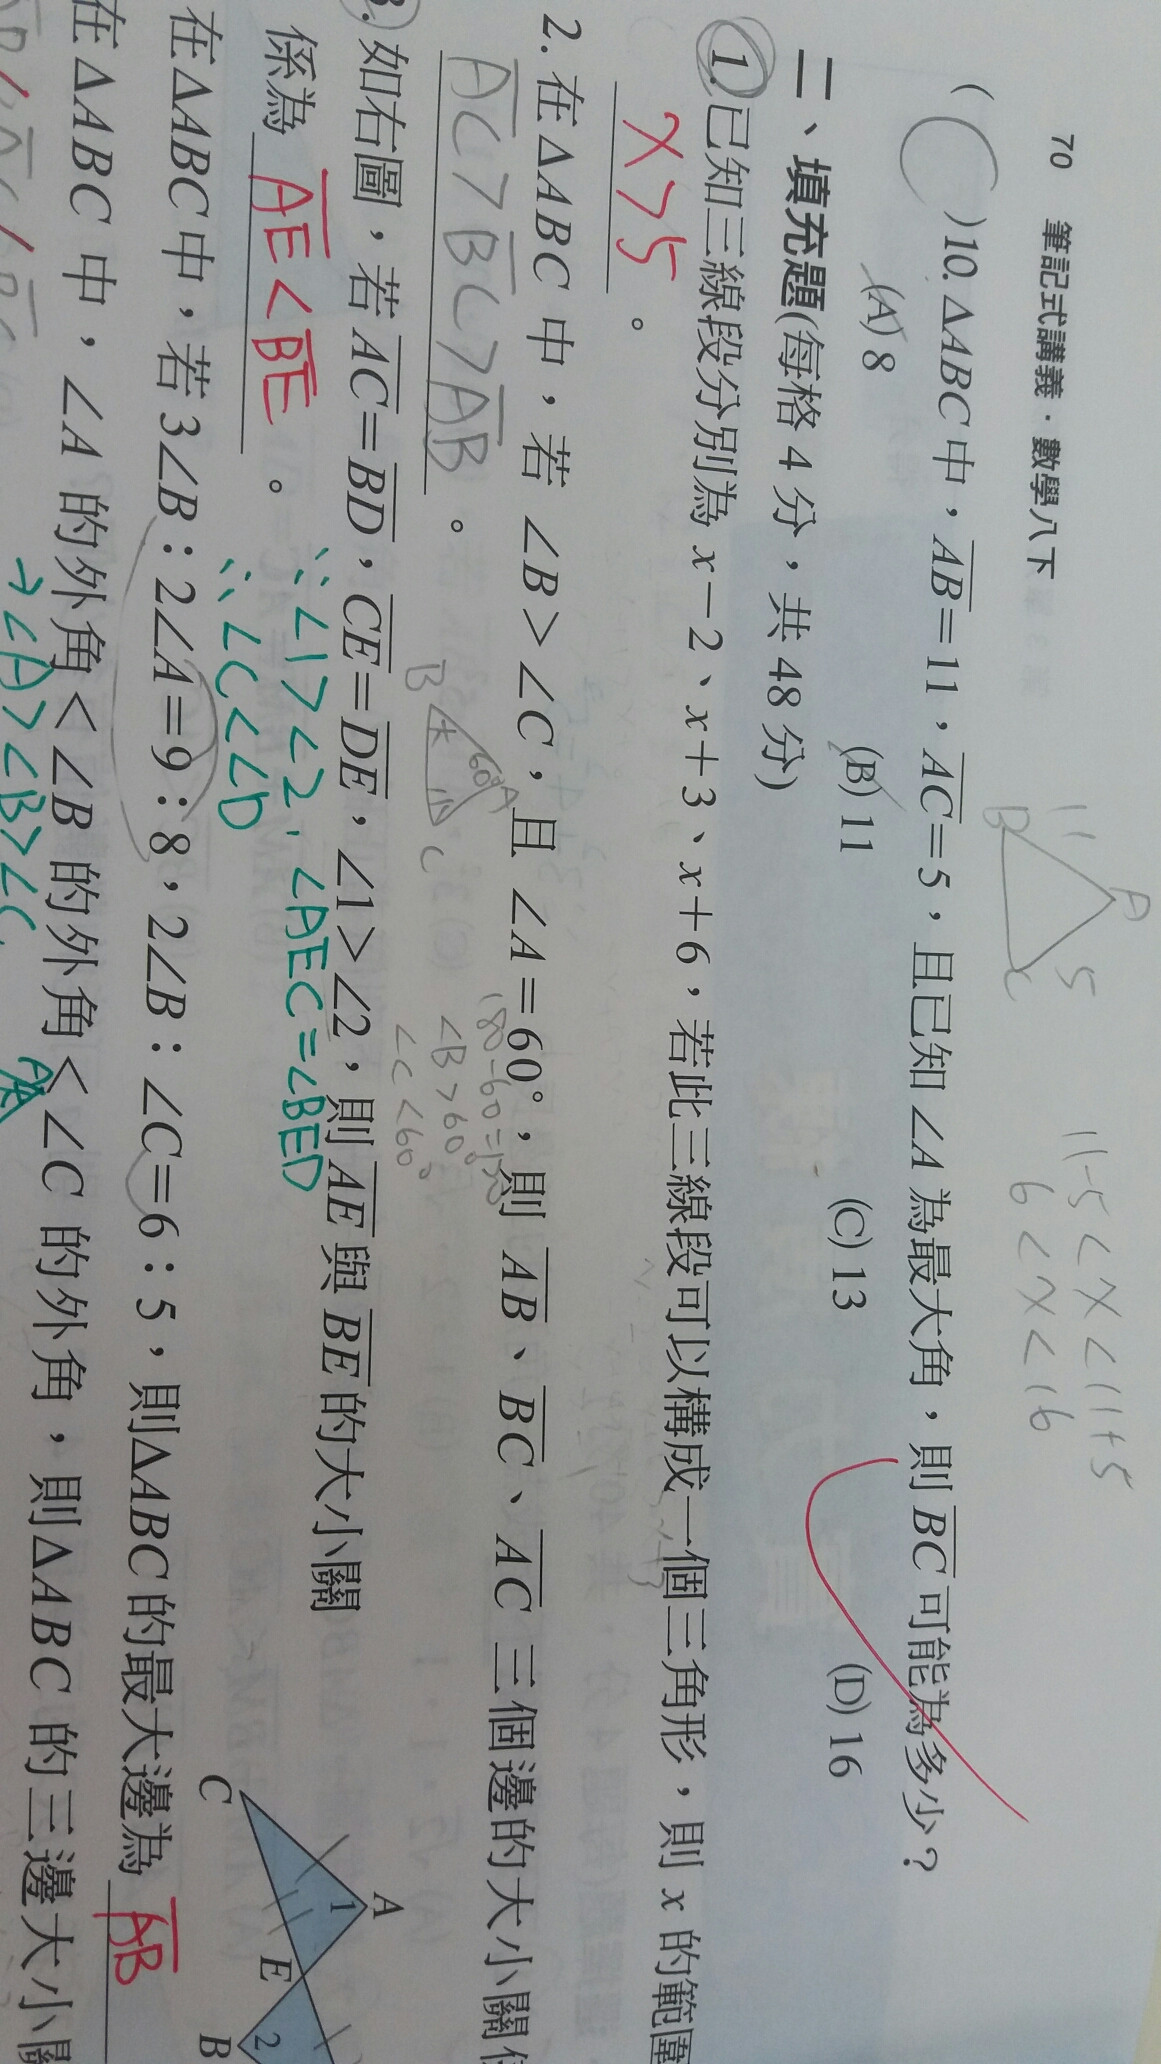 70 筆記式講義・數學八下
11 A 5 B C
11-5<x<11+5
6<x<16
( )10. ΔABC中，AB=11，AC=5，且已知∠A為最大角，則BC可能為多少？
(A) 8 (B) 11 (C) 13 (D) 16
二、填充題(每格4分，共48分)
1.已知三線段分別為x－2、x＋3、x＋6，若此三線段可以構成一個三角形，則x的範圍
x>5。
2. 在ΔABC中，若∠B>∠C，且∠A=60°，則AB、BC、AC三個邊的大小關
AC>BC>AB。
B 60° A C
180-60=120
∠B>60°
∠C<60°
3. 如右圖，若AC=BD，CE=DE，∠1>∠2，則AE與BE的大小關
係為 AE<BE。
∵∠1>∠2，∠AEC=∠BED
∴∠C<∠D
A 1 C E B 2
在ΔABC中，若3∠B：2∠A=9：8，2∠B：∠C=6：5，則ΔABC的最大邊為 AB
在ΔABC中，∠A的外角<∠B的外角<∠C的外角，則ΔABC的三邊大小關
→∠A>∠B>∠C